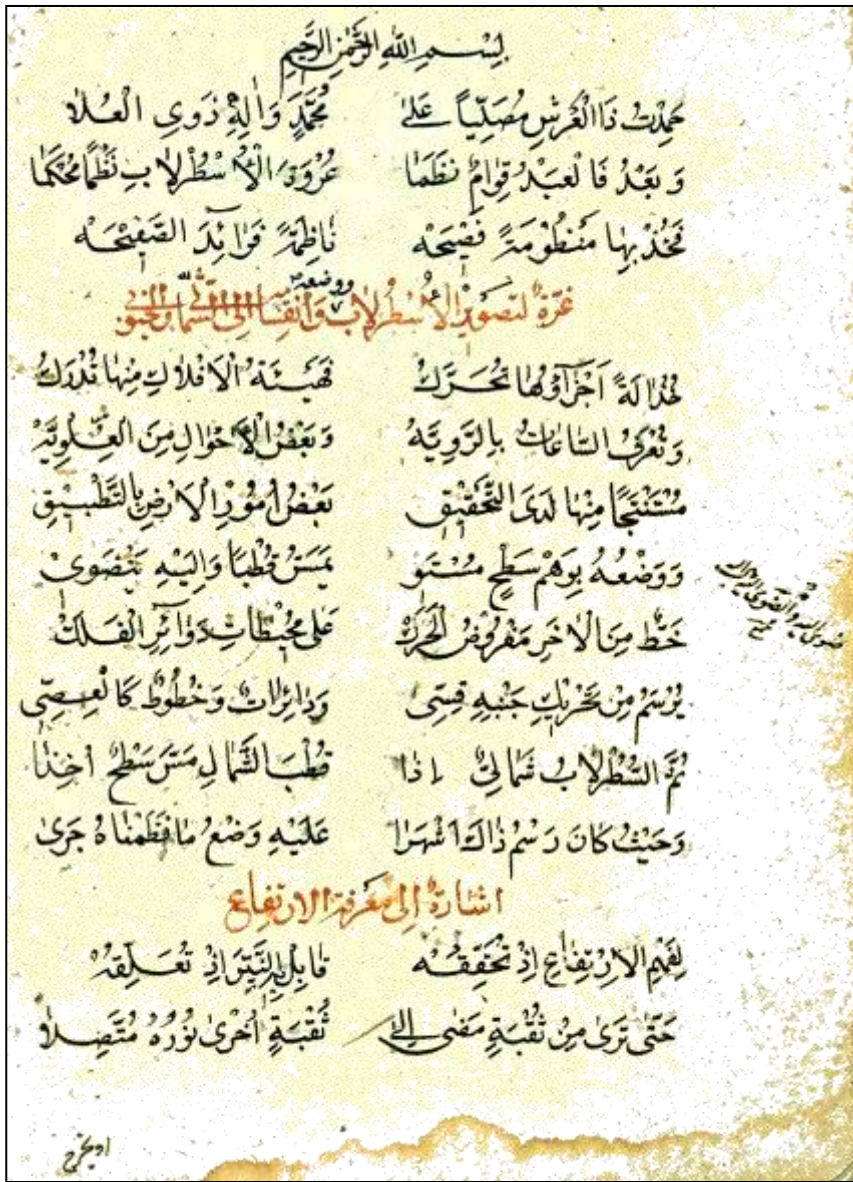 بِسْمِ اللّٰهِ الرَّحْمٰنِ الرَّحِيمِ
حَمِدْتُ ذَا الْعَرْشِ مُصَلِّياً عَلیٰ مُحَمَّدٍ وَاٰلِهِ ذَوِى الْعُلاٰ
وَ بَعْدُ فَالْعَبْدُ قِوٰامٌ نَظَمٰا عُرْوَةَ الْاُسْطُرْلاٰبِ نَظْماً مُحْكَمٰا
فَخُذْ بِهٰا مَنْظُومَةً فَصٖيحَهْ نٰاظِمَةً فَوٰآئِدَ الصَّفٖيحَهْ
غرّة لتصوير الْاُسْطُرلاٰب ووضعه وَانْقِسٰامه اِلى الشّمٰالى والجنوبى
هٰذٰا لَةً اَجْزٰآؤُهٰا تُحَرَّكُ فَهَيْئَةُ الْاَفْلاٰكِ مِنْهٰا تُدْرَكُ
وَتُعْرَفُ السّٰاعٰاتُ بِالرَّوِيَّهْ وَبَعْضُ الْاَحْوٰالِ مِنَ الْعِلْوِيَّهْ
مُسْتَنْتَجاً مِنْهٰا لَدَى التَّحْقٖيقِ بَعْضُ اُمُورِ الْاَرْضِ بِالتَّطْبٖيقِ
وَ وَضْعُهُ بِوَهْمِ سَطْحٍ مُسْتَوٍ يَمَسُّ قُطْباً وَ اِلَيْهِ يَنْضَوٖى
خَطٌّ مِنَ الْاٰخَرِ مَفْرُوضُ الْحَرَكْ عَلىٰ مُحٖيطٰاتِ دَوٰآئِرِ الْفَلَكْ
يُرْسَمُ مِنْ تَحْرٖيكِ جَنْبِهِ قِسِىّ وَدٰائِرٰاتٌ وَخُطُوطٌ كَالْعِصِىّ
ثُمَّ السُّطُرْلاٰبُ شَمٰالِىٌّ اِذٰا قُطْبَ الشَّمٰالِ مَسَّ سَطْحٌ اُخِذٰا
وَحَيْثُ كٰانَ رَسْمُ ذٰاكَ اَشْهَرٰا عَلَيْهِ وَضْعُ مٰا نَظَمْنٰاهُ جَرىٰ
اشارة اِلىٰ معرفة الارتفاع
لِفَهْمِ الْاِرْتِفٰاعِ اِذْ تُحَقِّقُهْ قٰابِلْ بِهِ النَّيِّرَ اِذْ تُعَلِّقُهْ
حَتّٰى تَرىٰ مِنْ ثُقْبَةٍ مَضٰى اِلىٰ ثُقْبَةٍ اُخْرىٰ نُورُهُ مُتَّصِلاٰ